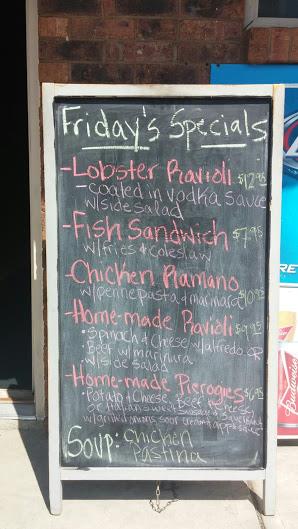 Friday's Specials
-Lobster Ravioli $12.95
-coated in vodka sauce
w/side salad
-Fish Sandwich $7.95
w/fries & coleslaw
-Chicken Plamano
w/penne pasta & marinara $10.95
-Home-made Ravioli $9.95
•Spinach & Cheese w/alfredo OR
Beef w/marinura
•w/side salad
-Home-made Pierogies $6.95
•Potato & Cheese, Beef & Cheese,
OR Italian Sweet Sausage &
w/grilled onions sour cream & applesauce
Soup: chicken
Pastina
RE
Budweiser